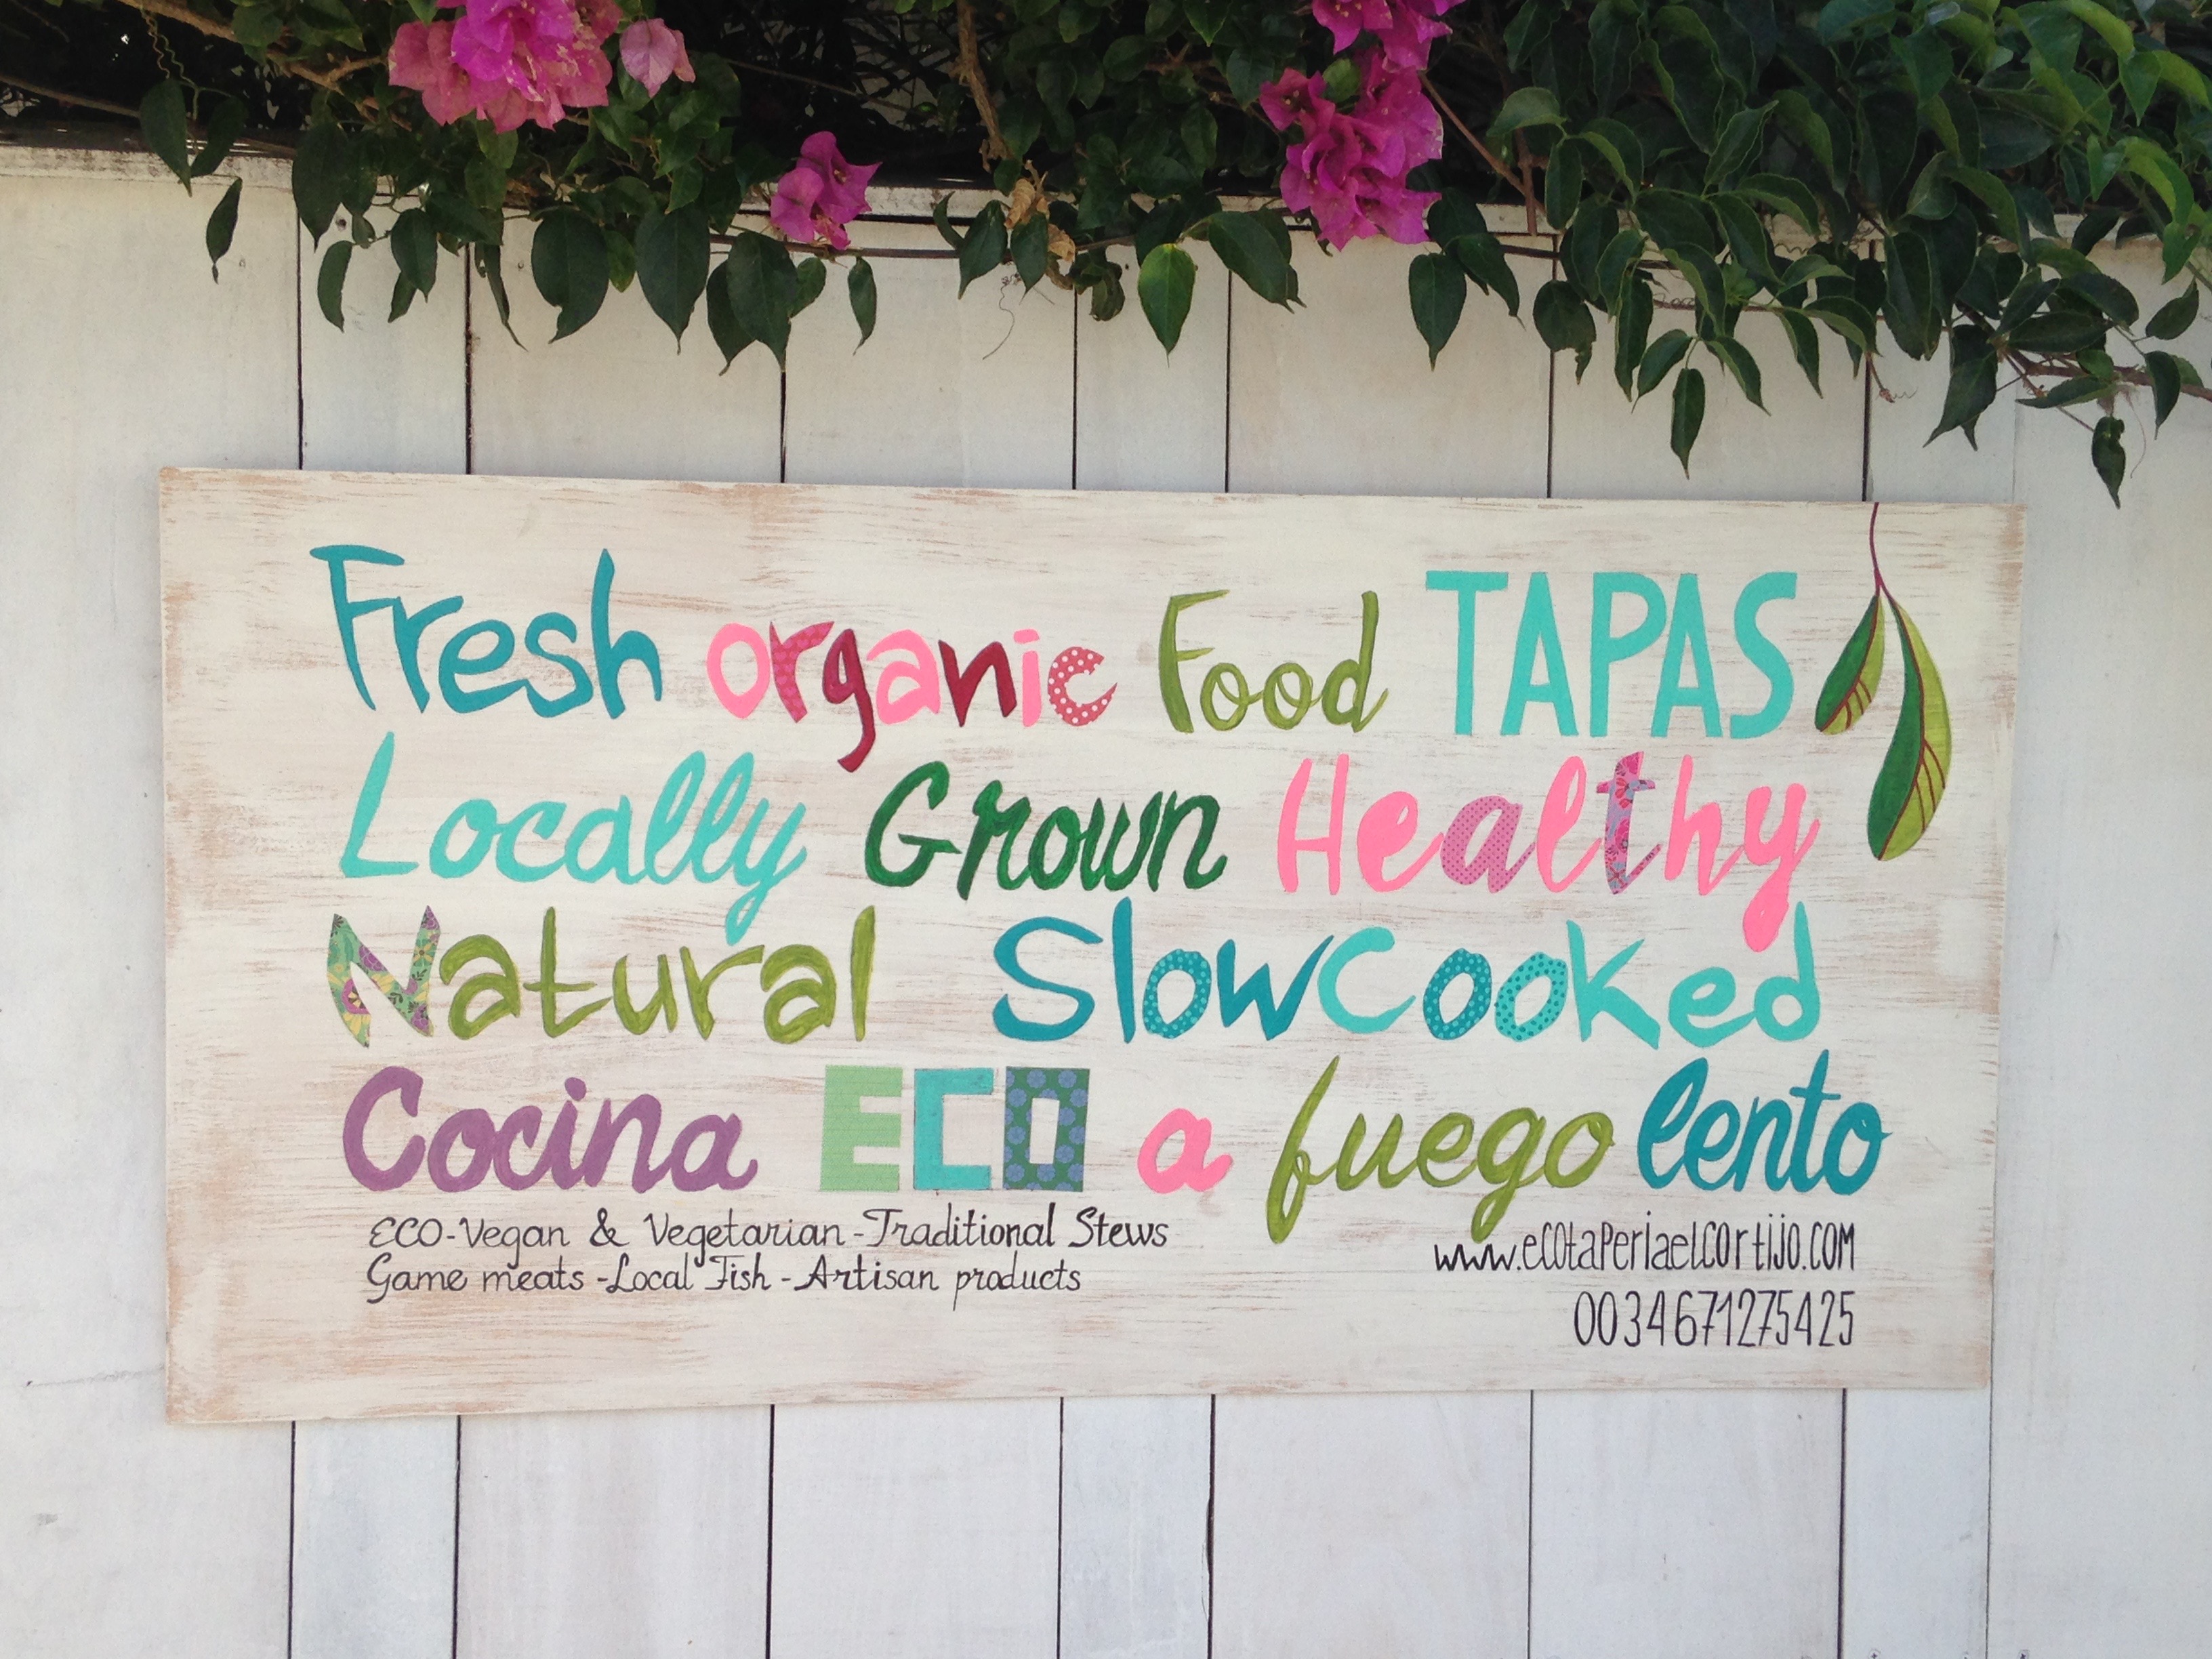 Fresh organic Food TAPAS
Locally Grown Healthy
Natural SlowCooked
Cocina ECO a fuego lento
ECO-Vegan & Vegetarian-Traditional Stews
Game meats-Local Fish-Artisan products
www.ecotaperiaelcortijo.com
0034671275425